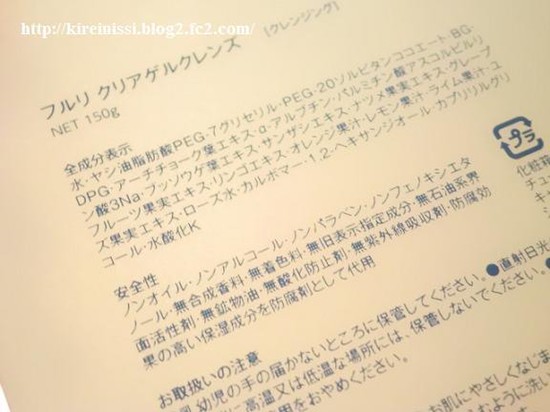 http://kireinissi.blog2.fc2.com/
フルリ クリアゲルクレンズ [クレンジング]
NET 150g
全成分表示
水・ヤシ油脂肪酸PEG-7グリセリル・PEG-20ソルビタンココエート・BG・
DPG・アーチチョーク葉エキス・α-アルブチン・パルミチン酸アスコルビルリ
ン酸3Na・ブッソウゲ葉エキス・サンザシエキス・ナツメ果実エキス・グレープ
フルーツ果実エキス・リンゴエキス・オレンジ果汁・レモン果汁・ライム果汁・ユ
ズ果実エキス・ローズ水・カルボマー・1,2-ヘキサンジオール・カプリリルグリ
コール・水酸化K
安全性
ノンオイル・ノンアルコール・ノンパラベン・ノンフェノキシエタ
ノール・無合成香料・無着色料・無旧表示指定成分・無石油系界
面活性剤・無鉱物油・無酸化防止剤・無紫外線吸収剤・防腐効
果の高い保湿成分を防腐剤として代用
お取扱いの注意
乳幼児の手の届かないところに保管してください。●直射日光
に高温又は低温な場所には、保管しないでください。
用をおやめください。
プラ
化粧箱
チュー
キャッ
お肌にやさしくなじま
ように洗い